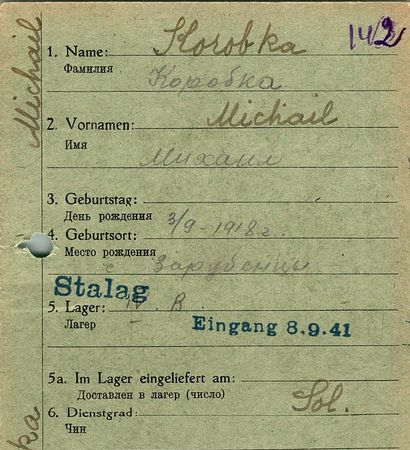 142
1. Name: Korobka
Фамилия Коробка
2. Vornamen: Michail
Имя Михаил
3. Geburtstag:
День рождения 3/9-1918 г.
4. Geburtsort:
Место рождения с Зарубенцы
Stalag
5. Lager: IV. B.
Лагер
Eingang 8.9.41
5a. Im Lager eingeliefert am:
Доставлен в лагер (число)
6. Dienstgrad: Sol.
Чин
Michail
ka